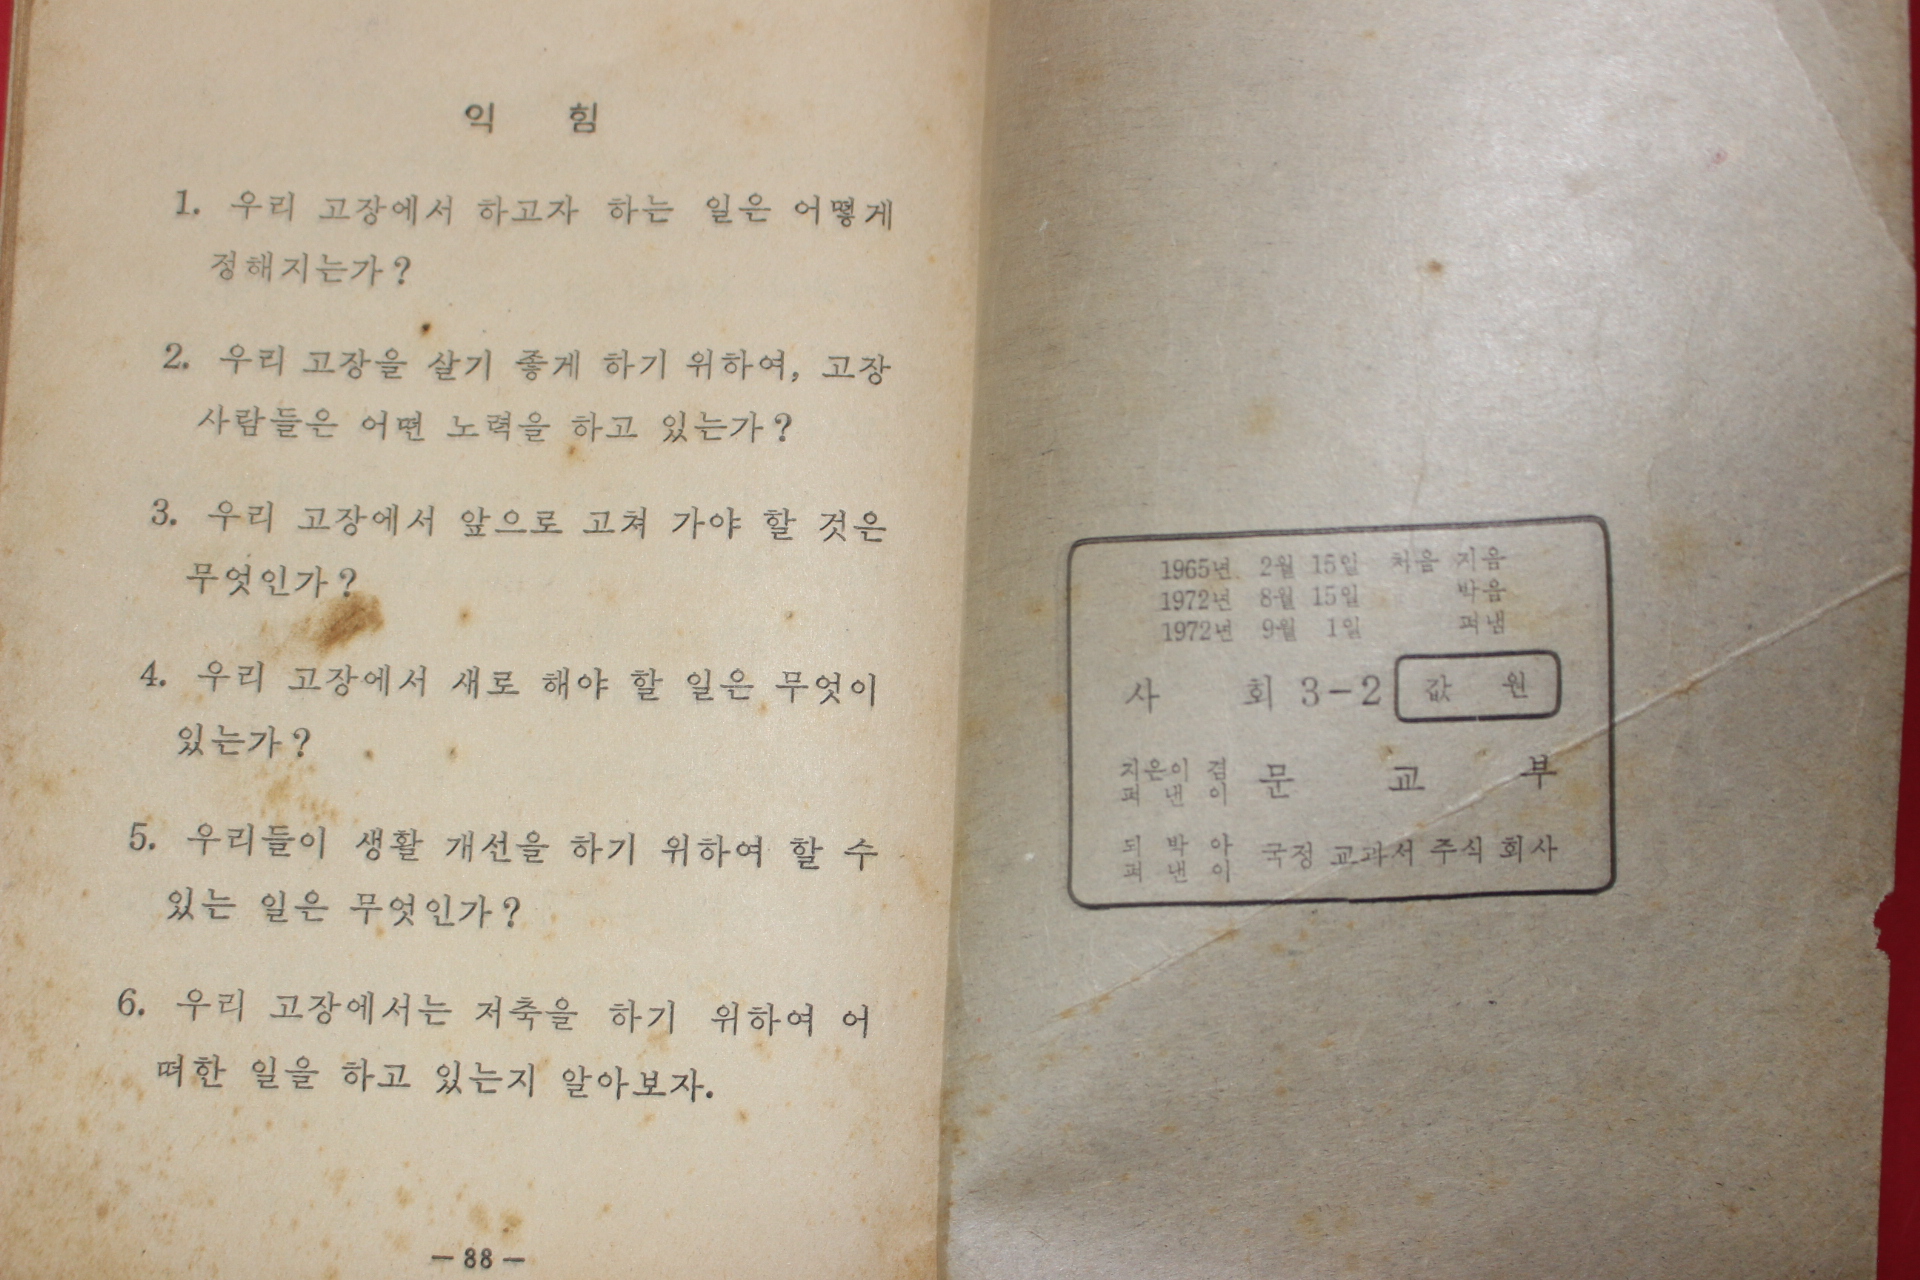 익 힘
1. 우리 고장에서 하고자 하는 일은 어떻게
정해지는가?
2. 우리 고장을 살기 좋게 하기 위하여, 고장
사람들은 어떤 노력을 하고 있는가?
3. 우리 고장에서 앞으로 고쳐 가야 할 것은
무엇인가?
4. 우리 고장에서 새로 해야 할 일은 무엇이
있는가?
5. 우리들이 생활 개선을 하기 위하여 할 수
있는 일은 무엇인가?
6. 우리 고장에서는 저축을 하기 위하여 어
떠한 일을 하고 있는지 알아보자.
— 88 —
1965년 2월 15일 처음 지음
1972년 8월 15일 박음
1972년 9월 1일 펴냄
사 회 3-2 값 원
지은이 겸
펴 낸 이 문 교 부
되 박 아
펴 낸 이 국정 교과서 주식 회사